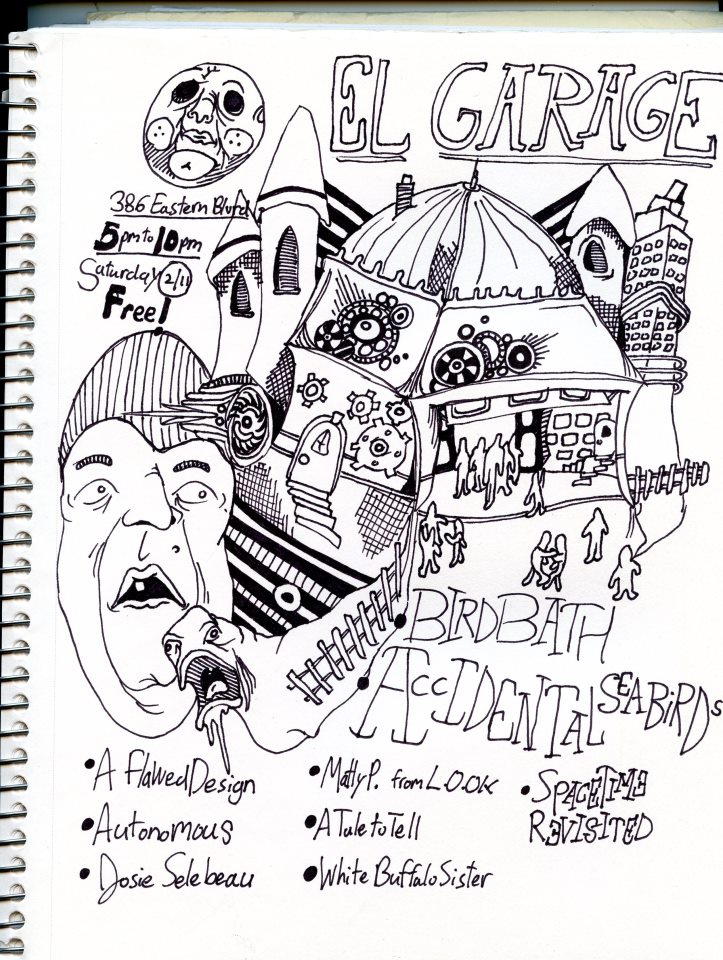 EL GARAGE
386 Eastern Blvd
5pm to 10pm
Saturday 2/11
Free!
• BIRDBATH
• ACCIDENTAL SEABIRDS
• A Flawed Design
• Autonomous
• Josie Selebeau
• Matty P. from L.O.O.K
• A Tale to Tell
• White Buffalo Sister
• SPACETIME
REVISITED